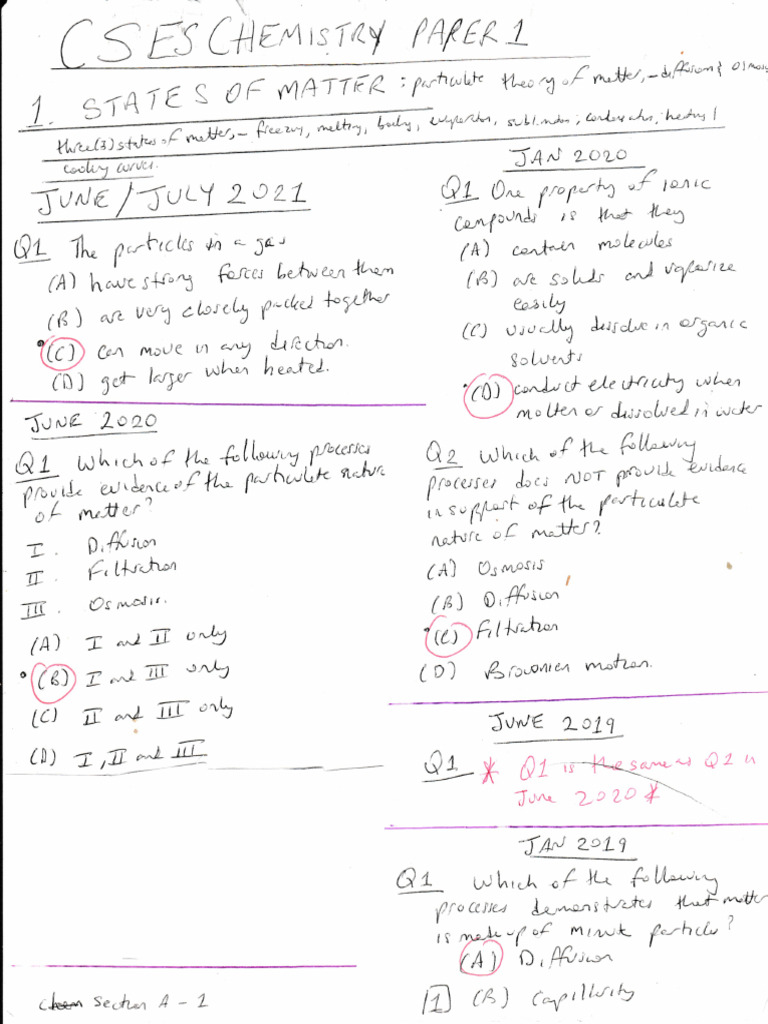 CSES CHEMISTRY PAPER 1
1. STATES OF MATTER: particulate theory of matter, - diffusion & osmos
three(3) states of matter, - freezing, melting, boiling, evaporation, sublimation, condensation, heating /
cooling curves.
JUNE/JULY 2021
Q1 The particles in a gas
(A) have strong forces between them
(B) are very closely packed together
(C) can move in any direction.
(D) get larger when heated.
JUNE 2020
Q1 Which of the following processes
provide evidence of the particulate nature
of matter?
I. Diffusion
II. Filtration
III. Osmosis.
(A) I and II only
(B) I and III only
(C) II and III only
(D) I, II and III
Section A - 1
JAN 2020
Q1 One property of ionic
compounds is that they
(A) contain molecules
(B) are solids and vaporize
easily
(C) usually dissolve in organic
solvents
(D) conduct electricity when
molten or dissolved in water
Q2 Which of the following
processes does NOT provide evidence
in support of the particulate
nature of matter?
(A) Osmosis
(B) Diffusion
(C) Filtration
(D) Brownian motion.
JUNE 2019
Q1 * Q1 is the same as Q1 in
June 2020 *
JAN 2019
Q1 Which of the following
processes demonstrates that matter
is made up of minute particles?
(A) Diffusion
1 (B) Capillarity